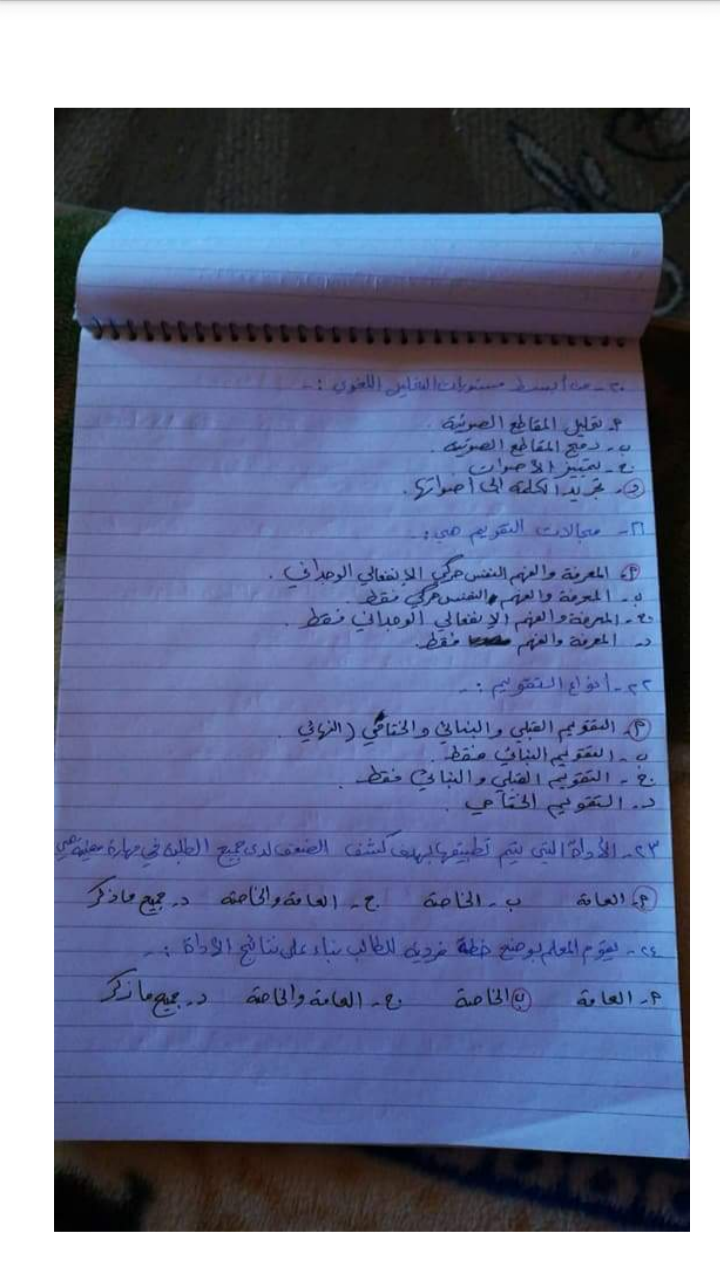 ٢٠- من أبسط مستويات التحليل اللغوي :-
أ- تحليل المقاطع الصوتية .
ب- دمج المقاطع الصوتية .
ج- تمييز الأصوات .
د- تجريد الكلمة الى أصواتها .
٢١- مجالات التقويم هي:-
أ- المعرفة والفهم النفس حركي الإنفعالي الوجداني .
ب- المعرفة والفهم النفس حركي فقط .
ج- المعرفة والفهم الإنفعالي الوجداني فقط .
د- المعرفة والفهم فقط.
٢٢- أنواع التقويم :-
أ- التقويم القبلي والبنائي والختامي (النهائي
ب- التقويم البنائي فقط .
ج- التقويم القبلي والبنائي فقط .
د- التقويم الختامي .
٢٣- الأداة التي يتم تطبيقها بهدف كشف الضعف لدى جميع الطلبة في مهارة معينة هي
أ- العامة ب- الخاصة ج- العامة والخاصة د- جميع ما ذكر
٢٤- يقوم المعلم بوضع خطة فردية للطالب بناء على نتائج الأداة :-
أ- العامة ب- الخاصة ج- العامة والخاصة د- جميع ما ذكر